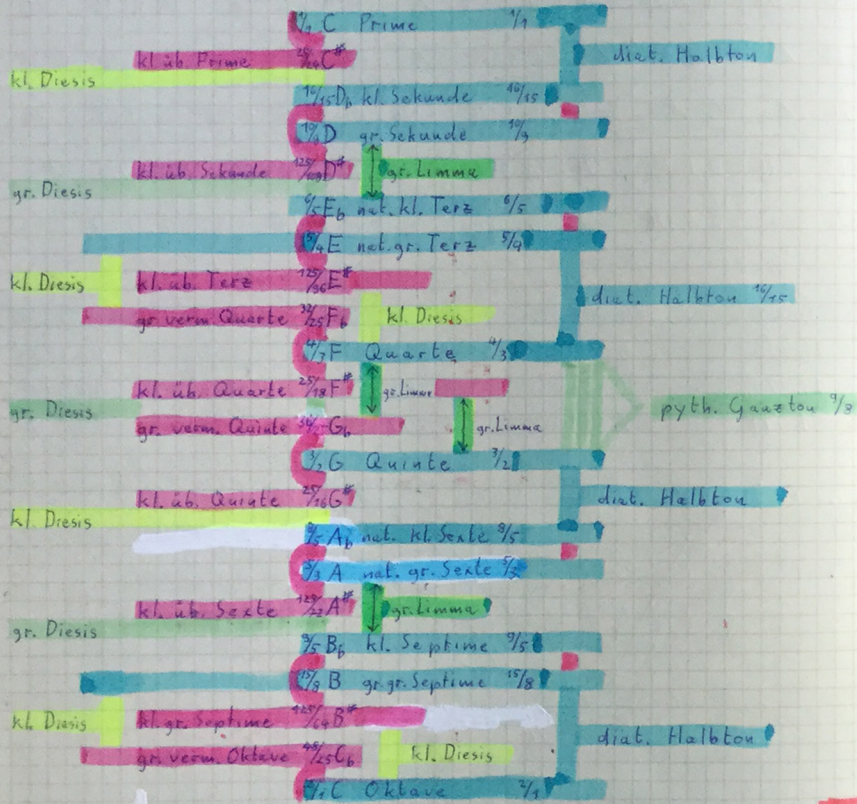 1/1 C Prime 1/1
diat. Halbton
kl. üb. Prime 25/24 C#
kl. Diesis
16/15 Db kl. Sekunde 16/15
10/9 D gr. Sekunde 10/9
kl. üb. Sekunde D# gr. Limma
gr. Diesis
6/5 Eb nat. kl. Terz 6/5
E nat. gr. Terz 5/4
kl. Diesis kl. üb. Terz 125/96 E#
diat. Halbton 16/15
gr. verm. Quarte 32/25 Fb kl. Diesis
F Quarte 4/3
kl. üb. Quarte 25/18 F# gr. Limma
gr. Diesis pyth. Ganzton 9/8
gr. verm. Quinte Gb gr. Limma
3/2 G Quinte 3/2
kl. üb. Quinte 25/16 G# diat. Halbton
kl. Diesis
8/5 Ab nat. kl. Sexte 8/5
5/3 A nat. gr. Sexte 5/3
kl. üb. Sexte A# gr. Limma
gr. Diesis
9/5 Bb kl. Septime 9/5
15/8 B gr. gr. Septime 15/8
kl. Diesis kl. gr. Septime 125/64 B#
diat. Halbton
gr. verm. Oktave 48/25 Cb kl. Diesis
2/1 C Oktave 2/1